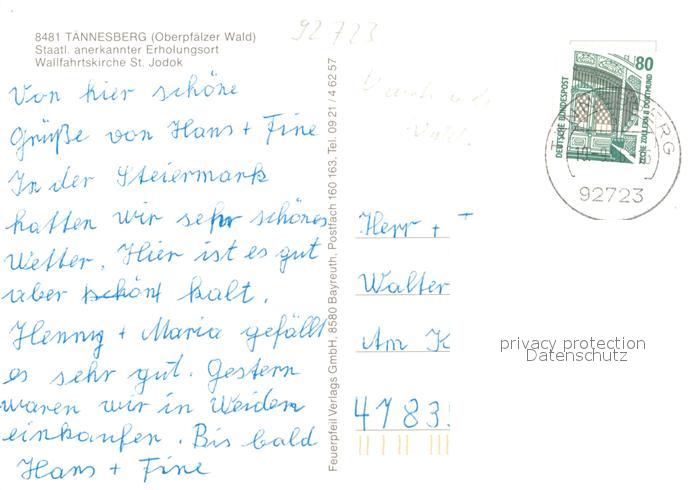 92723
8481 TÄNNESBERG (Oberpfälzer Wald)
Staatl. anerkannter Erholungsort
Wallfahrtskirche St. Jodok
Von hier schöne
Grüße von Hans + Fine
In der Steiermark
hatten wir sehr schönes
Wetter. Hier ist es gut
aber schönt kalt.
Henny + Maria gefällt
es sehr gut. Gestern
waren wir in Weiden
einkaufen. Bis bald
Hans + Fine
Feuerpfeil Verlags GmbH, 8580 Bayreuth, Postfach 160 163, Tel. 09 21 / 4 62 57
80
DEUTSCHE BUNDESPOST
ZECHE ZOLLERN II DORTMUND
92723
Herr +
Walter
Am K
4783
privacy protection
Datenschutz